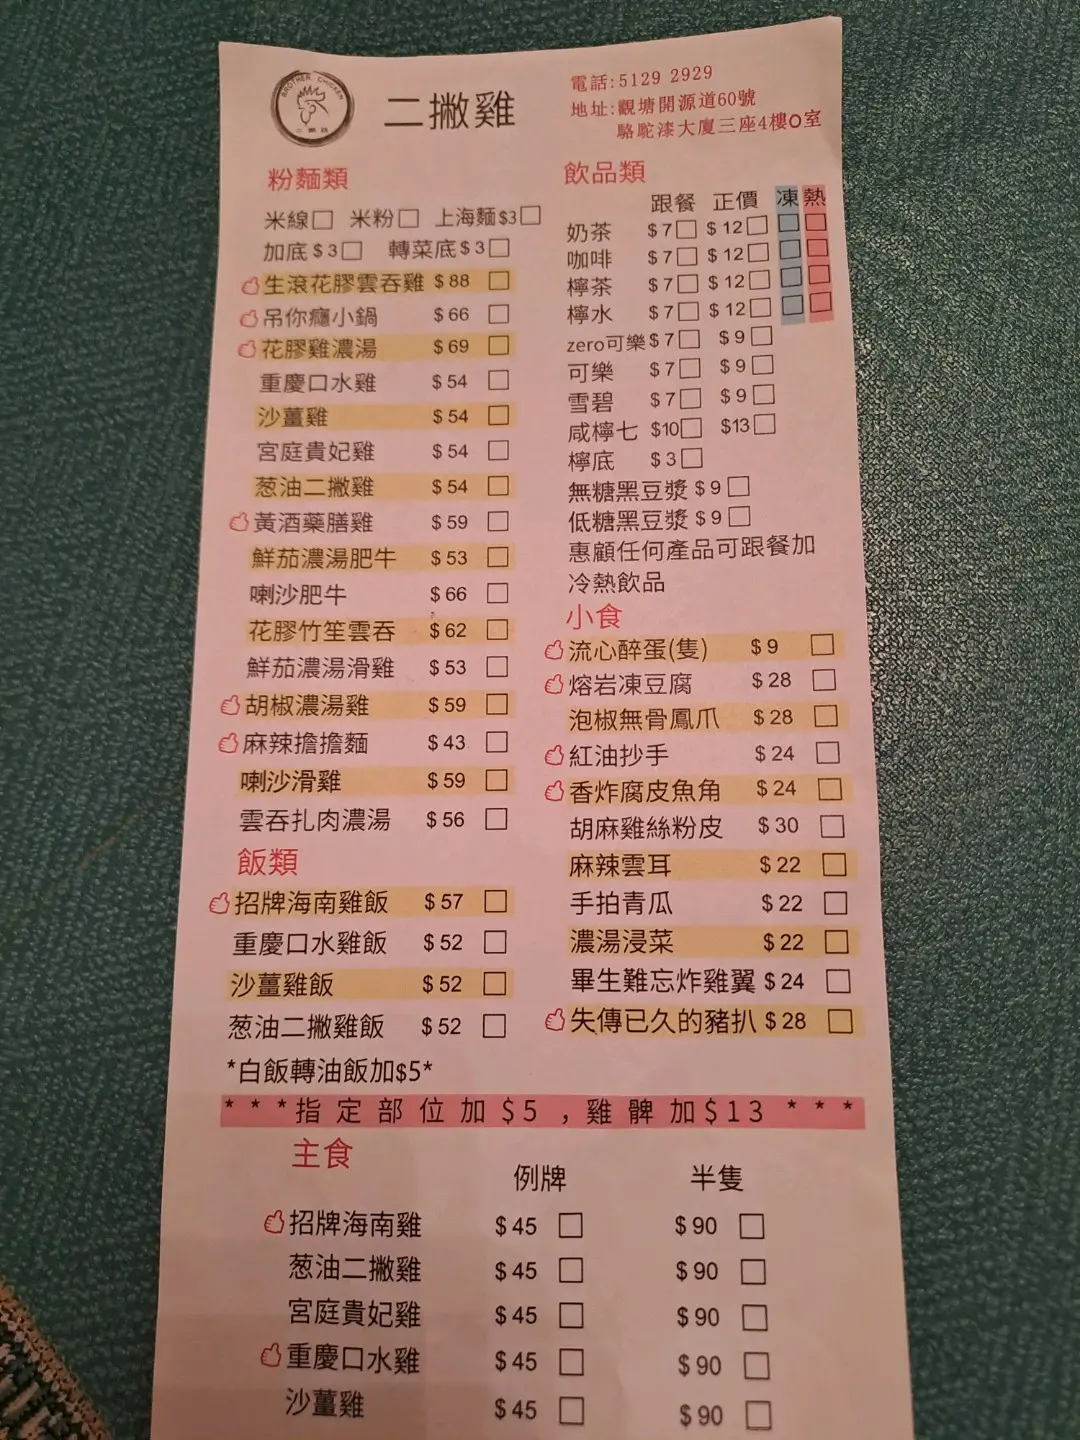 BROTHER CHICKEN
二撇雞
二撇雞
電話:5129 2929
地址:觀塘開源道60號
駱駝漆大廈三座4樓O室
粉麵類
米線□ 米粉□ 上海麵$3□
加底$3□ 轉菜底$3□
生滾花膠雲吞雞 $88 □
吊你癮小鍋 $66 □
花膠雞濃湯 $69 □
重慶口水雞 $54 □
沙薑雞 $54 □
宮庭貴妃雞 $54 □
葱油二撇雞 $54 □
黃酒藥膳雞 $59 □
鮮茄濃湯肥牛 $53 □
喇沙肥牛 $66 □
花膠竹笙雲吞 $62 □
鮮茄濃湯滑雞 $53 □
胡椒濃湯雞 $59 □
麻辣擔擔麵 $43 □
喇沙滑雞 $59 □
雲吞扎肉濃湯 $56 □
飯類
招牌海南雞飯 $57 □
重慶口水雞飯 $52 □
沙薑雞飯 $52 □
葱油二撇雞飯 $52 □
*白飯轉油飯加$5*
飲品類
跟餐 正價 凍 熱
奶茶 $7□ $12□ □ □
咖啡 $7□ $12□ □ □
檸茶 $7□ $12□ □ □
檸水 $7□ $12□ □ □
zero可樂 $7□ $9□
可樂 $7□ $9□
雪碧 $7□ $9□
咸檸七 $10□ $13□
檸底 $3□
無糖黑豆漿 $9□
低糖黑豆漿 $9□
惠顧任何產品可跟餐加
冷熱飲品
小食
流心醉蛋(隻) $9 □
熔岩凍豆腐 $28 □
泡椒無骨鳳爪 $28 □
紅油抄手 $24 □
香炸腐皮魚角 $24 □
胡麻雞絲粉皮 $30 □
麻辣雲耳 $22 □
手拍青瓜 $22 □
濃湯浸菜 $22 □
畢生難忘炸雞翼 $24 □
失傳已久的豬扒 $28 □
***指定部位加$5,雞髀加$13***
主食
例牌 半隻
招牌海南雞 $45 □ $90 □
葱油二撇雞 $45 □ $90 □
宮庭貴妃雞 $45 □ $90 □
重慶口水雞 $45 □ $90 □
沙薑雞 $45 □ $90 □